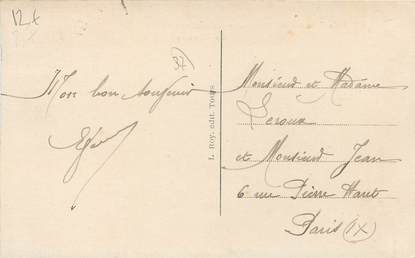 12 x
37
Mon bon souvenir
L. Roy, edit. Tours
Monsieur et Madame
Leroux
et Monsieur Jean
6 rue Pierre Haret
Paris (IX)